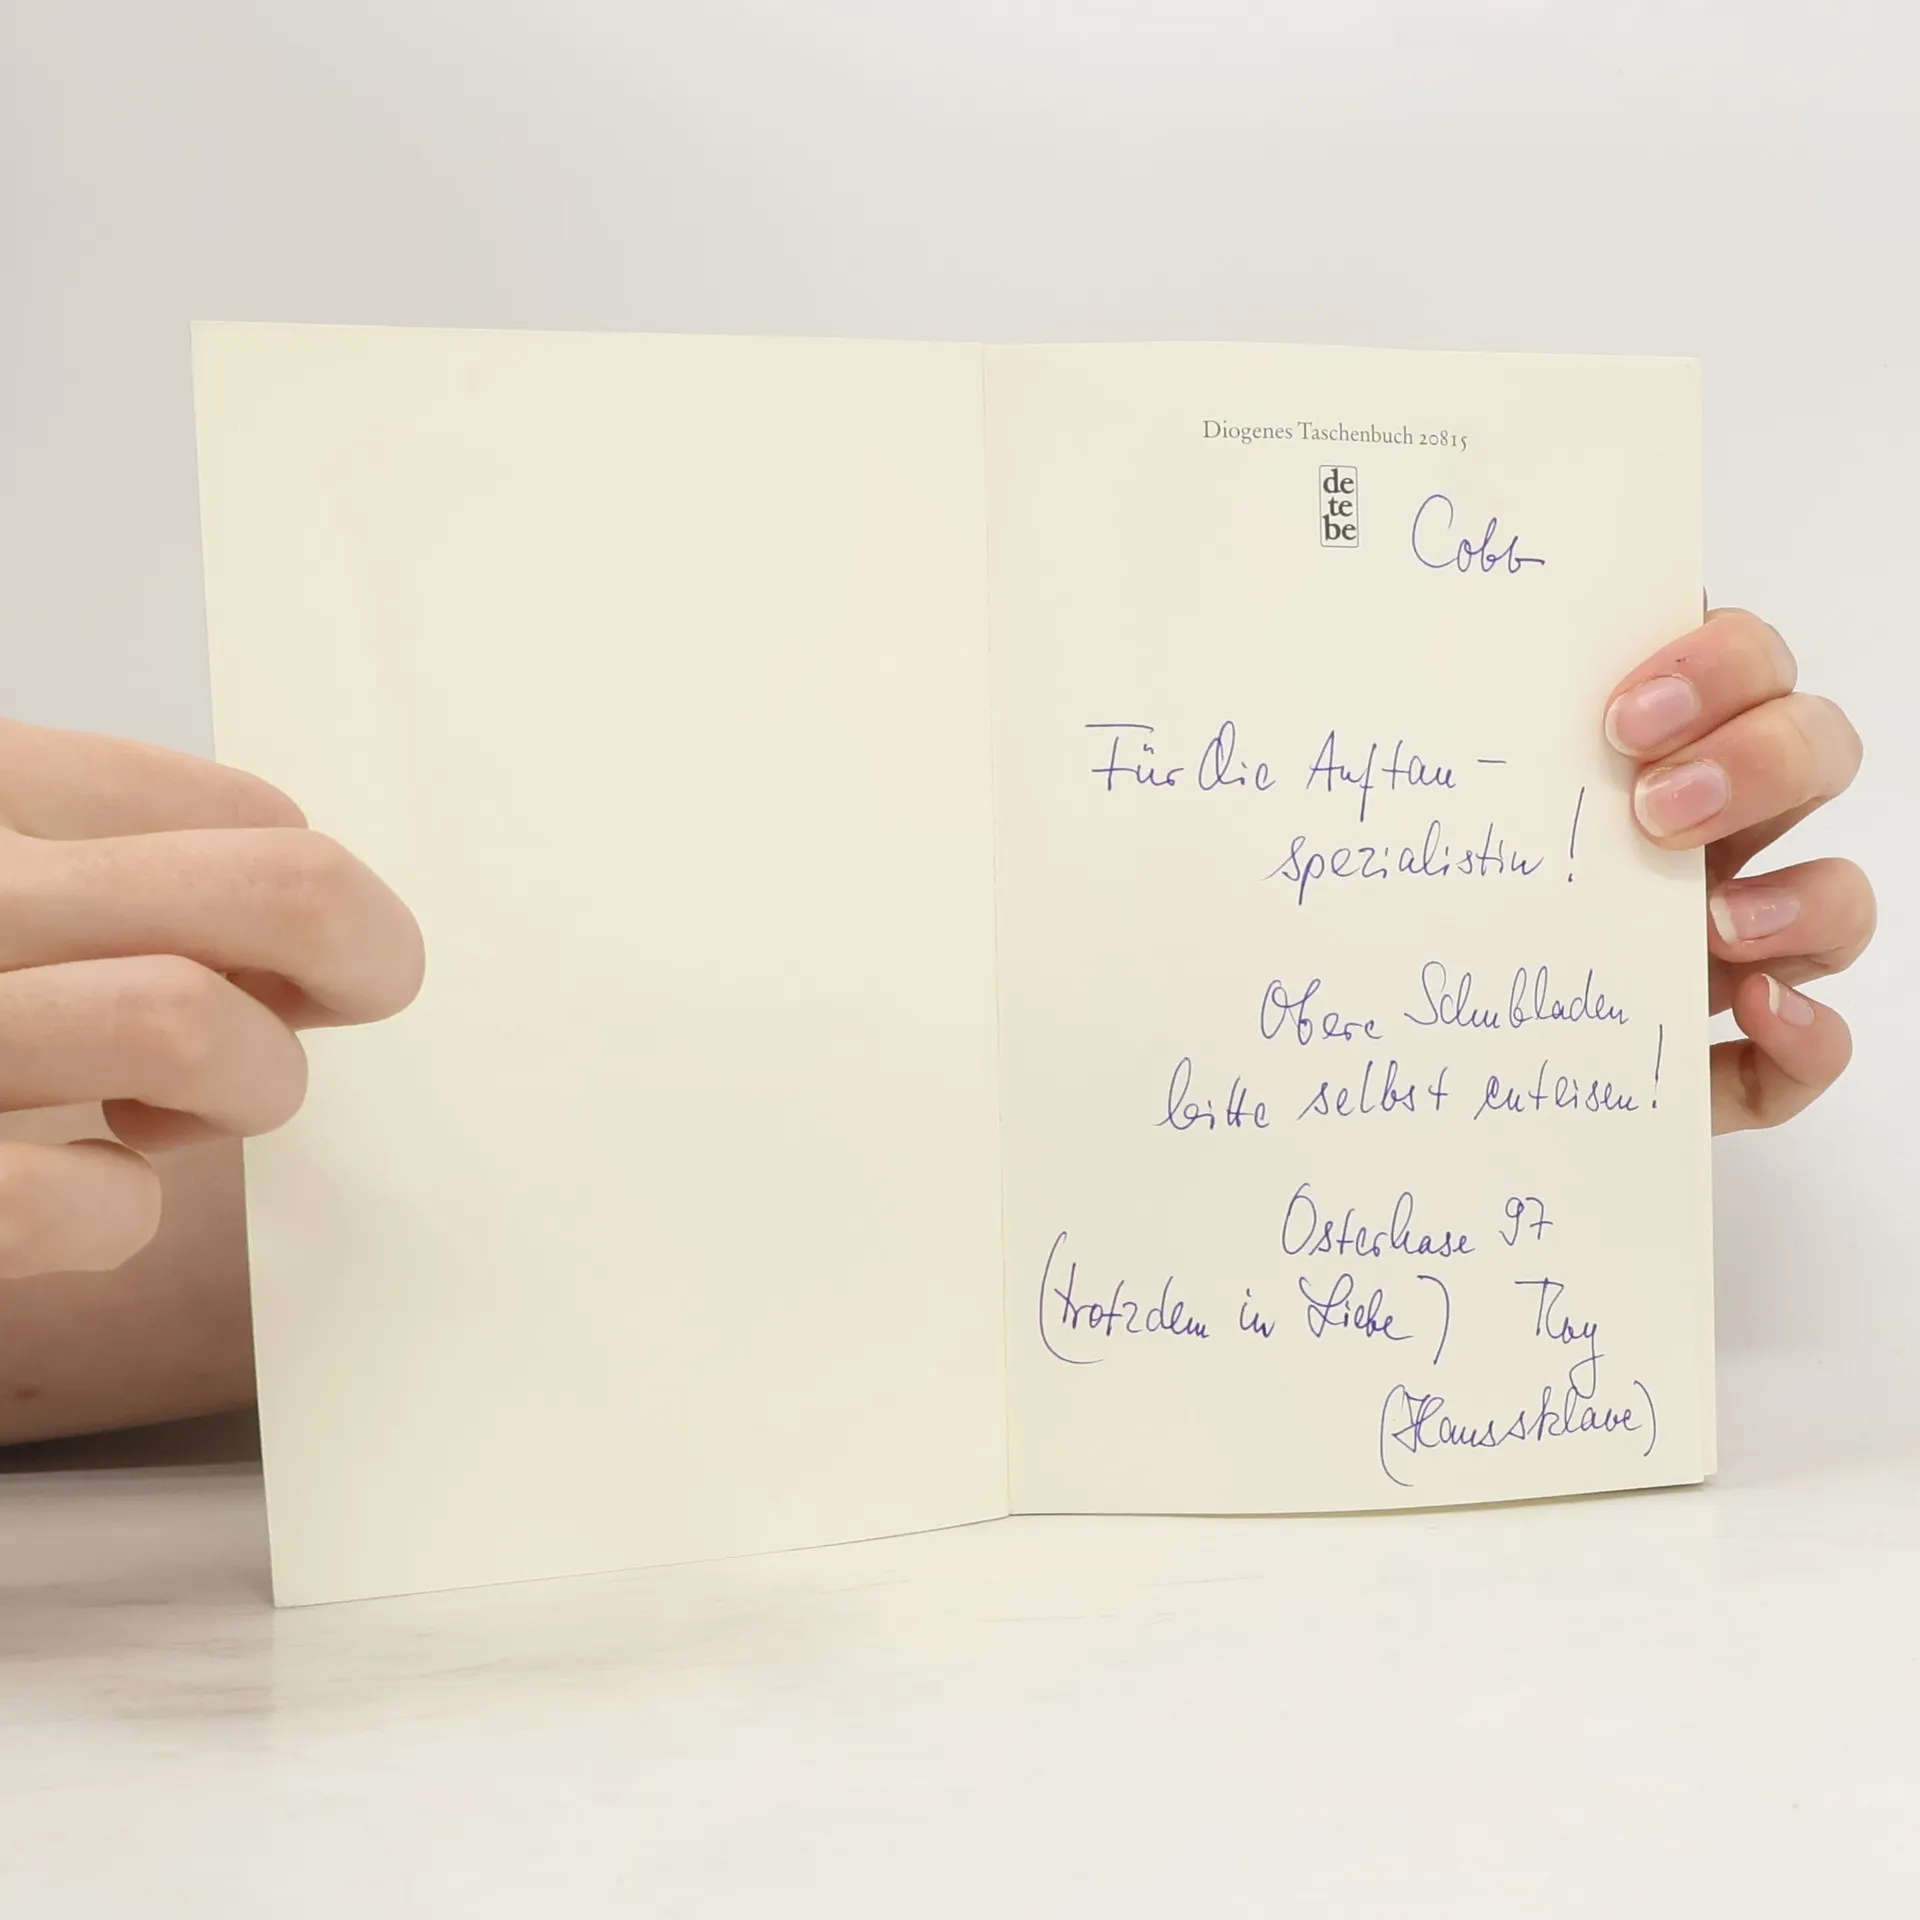 Diogenes Taschenbuch 20815
de
te
be
Cobb
Für die Auftau-
spezialistin!
Obere Schubladen
bitte selbst enteisen!
Osterhase 97
(trotzdem in Liebe) Roy
(Haussklave)